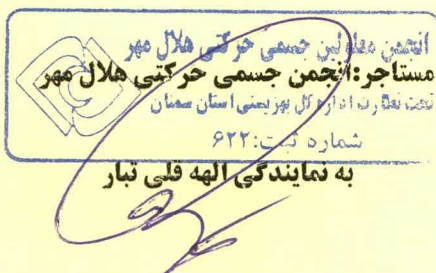 انجمن معلولین جسمی حرکتی هلال مهر
مستاجر:انجمن جسمی حرکتی هلال مهر
تحت نظارت اداره کل بهزیستی استان سمنان
شماره ثبت:۶۲۲
به نمایندگی الهه قلی تبار